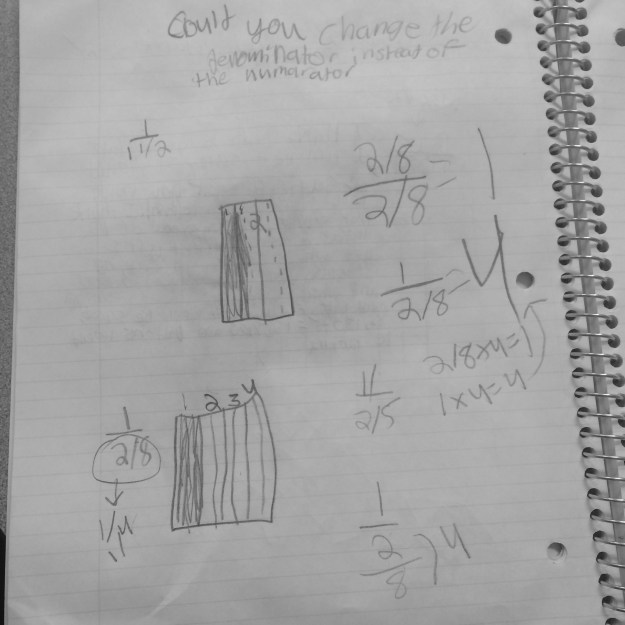 Could you change the
denominator instead of
the numarator
1
1 1/2
2/8
2/8 = 1
2
1
2/8 = 4
2/8x4=1
1x4=4
1 2 3 4
1
2/8
1/4
11
2/5
1
2
8
4